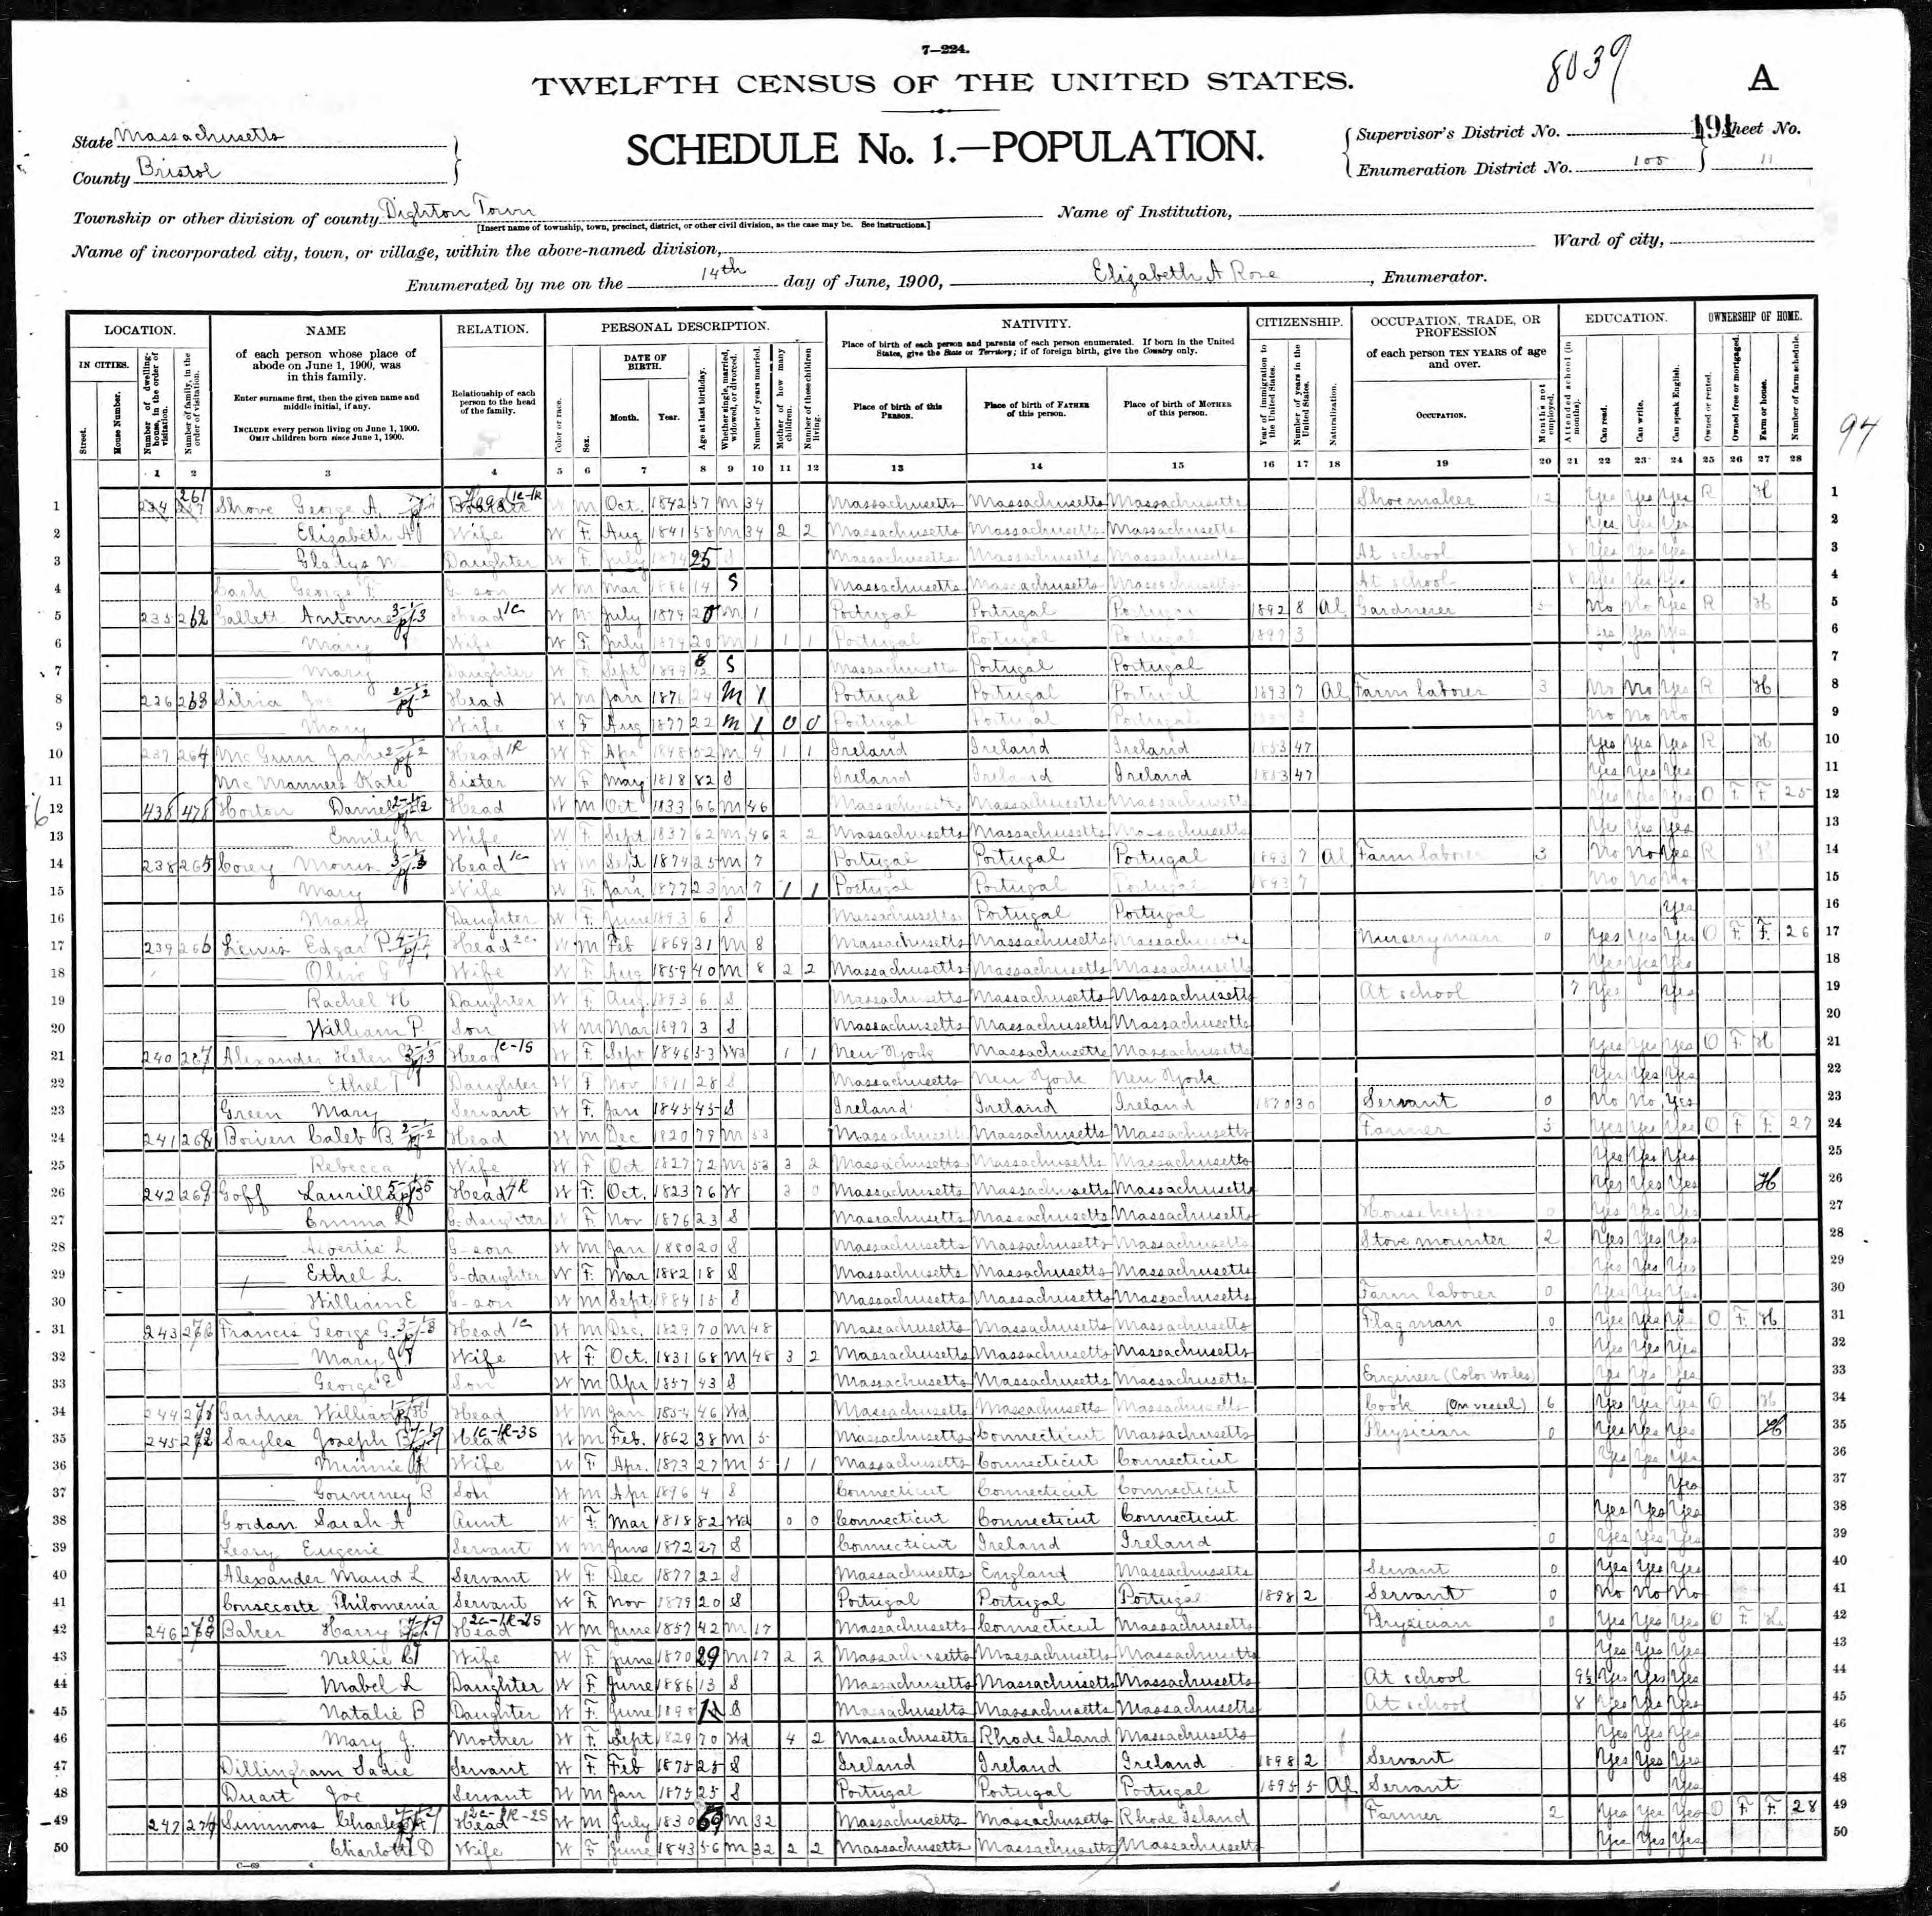 7—224.
TWELFTH CENSUS OF THE UNITED STATES.
8039
A
State Massachusetts
County Bristol
SCHEDULE No. 1.—POPULATION.
Supervisor's District No. 191 Sheet No.
Enumeration District No. 100 11
Township or other division of county Dighton Town Name of Institution,
[Insert name of township, town, precinct, district, or other civil division, as the case may be. See instructions.]
Name of incorporated city, town, or village, within the above-named division, Ward of city,
Enumerated by me on the 14th day of June, 1900, Elizabeth A Rose, Enumerator.
LOCATION. NAME RELATION. PERSONAL DESCRIPTION. NATIVITY. CITIZENSHIP. OCCUPATION, TRADE, OR PROFESSION EDUCATION. OWNERSHIP OF HOME.
IN CITIES. Street. House Number. Number of dwelling-house, in the order of visitation. Number of family, in the order of visitation.
of each person whose place of abode on June 1, 1900, was in this family.
Enter surname first, then the given name and middle initial, if any.
INCLUDE every person living on June 1, 1900.
OMIT children born since June 1, 1900.
Relationship of each person to the head of the family.
Color or race. Sex. DATE OF BIRTH. Month. Year. Age at last birthday. Whether single, married, widowed, or divorced. Number of years married. Mother of how many children. Number of these children living.
Place of birth of each person and parents of each person enumerated. If born in the United States, give the State or Territory; if of foreign birth, give the Country only.
Place of birth of this PERSON. Place of birth of FATHER of this person. Place of birth of MOTHER of this person.
Year of immigration to the United States. Number of years in the United States. Naturalization.
of each person TEN YEARS of age and over.
OCCUPATION. Months not employed.
Attended school (in months). Can read. Can write. Can speak English. Owned or rented. Owned free or mortgaged. Farm or house. Number of farm schedule.
94
1 2 3 4 5 6 7 8 9 10 11 12 13 14 15 16 17 18 19 20 21 22 23 24 25 26 27 28
1 234 261 Shove George A. Head W M Oct. 1842 57 M 34 Massachusetts Massachusetts Massachusetts Shoemaker 12 Yes Yes Yes R H 1
2 Elizabeth A Wife W F Aug 1841 58 M 34 2 2 Massachusetts Massachusetts Massachusetts Yes Yes Yes 2
3 Gladys Daughter W F July 1874 25 S Massachusetts Massachusetts Massachusetts At school 8 Yes Yes Yes 3
4 Cash George F. G son W M Mar 1886 14 S Massachusetts Massachusetts Massachusetts At school 8 Yes Yes Yes 4
5 235 262 Gallett Antonne Head W M July 1879 20 M 1 Portugal Portugal Portugal 1892 8 Al Gardnerer No No Yes R H 5
6 Mary Wife W F July 1879 20 M 1 1 1 Portugal Portugal Portugal 1897 3 Yes Yes Yes 6
7 Mary Daughter W F Sept 1899 8/12 S Massachusetts Portugal Portugal 7
8 236 263 Silvia Joe Head W M Jan 1876 24 M 1 Portugal Portugal Portugal 1893 7 Al Farm laborer 3 No No Yes R H 8
9 Mary Wife W F Aug 1877 22 M 1 0 0 Portugal Portugal Portugal 3 No No No 9
10 237 264 Mc Gunn Jane Head W F Apr 1848 52 M 4 1 1 Ireland Ireland Ireland 1853 47 Yes Yes Yes R H 10
11 Mc Manners Kate Sister W F May 1818 82 S Ireland Ireland Ireland 1853 47 Yes Yes Yes 11
12 438 478 Horton Daniel Head W M Oct 1833 66 M 46 Massachusetts Massachusetts Massachusetts Yes Yes Yes O F F 25 12
13 Emily Wife W F Sept 1837 62 M 46 2 2 Massachusetts Massachusetts Massachusetts Yes Yes Yes 13
14 238 265 Corey Morris Head W M Sept 1874 25 M 7 Portugal Portugal Portugal 1893 7 Al Farm laborer 3 No No Yes R H 14
15 Mary Wife W F Jan 1877 23 M 7 1 1 Portugal Portugal Portugal 1893 7 No No No 15
16 Mary Daughter W F June 1893 6 S Massachusetts Portugal Portugal Yes 16
17 239 266 Lewis Edgar P. Head W M Feb 1869 31 M 8 Massachusetts Massachusetts Massachusetts Nurseryman 0 Yes Yes Yes O F F 26 17
18 Olive G Wife W F Aug 1859 40 M 8 2 2 Massachusetts Massachusetts Massachusetts Yes Yes Yes 18
19 Rachel H Daughter W F Aug. 1893 6 S Massachusetts Massachusetts Massachusetts At school 7 Yes Yes 19
20 William P. Son W M Mar 1897 3 S Massachusetts Massachusetts Massachusetts 20
21 240 267 Alexander Helen Head W F Sept 1846 53 Wd 1 1 New York Massachusetts Massachusetts Yes Yes Yes O F H 21
22 Ethel T Daughter W F Nov 1871 28 S Massachusetts New York New York Yes Yes Yes 22
23 Green Mary Servant W F Jan 1845 45 S Ireland Ireland Ireland 1870 30 Servant 0 No No Yes 23
24 241 268 Bowen Caleb B. Head W M Dec 1820 79 M 53 Massachusetts Massachusetts Massachusetts Farmer 3 Yes Yes Yes O F F 27 24
25 Rebecca Wife W F Oct 1827 72 M 53 3 2 Massachusetts Massachusetts Massachusetts Yes Yes Yes 25
26 242 269 Goff Laurilla Head W F Oct. 1823 76 W 3 0 Massachusetts Massachusetts Massachusetts Yes Yes Yes H 26
27 Emma L G-daughter W F Nov 1876 23 S Massachusetts Massachusetts Massachusetts Housekeeper 0 Yes Yes Yes 27
28 L. G-son W M Jan 1880 20 S Massachusetts Massachusetts Massachusetts Stove mounter 2 Yes Yes Yes 28
29 Ethel L. G-daughter W F Mar 1882 18 S Massachusetts Massachusetts Massachusetts Yes Yes Yes 29
30 William E G-son W M Sept 1884 15 S Massachusetts Massachusetts Massachusetts Farm laborer 0 Yes Yes Yes 30
31 243 270 Francis George G. Head W M Dec. 1829 70 M 48 Massachusetts Massachusetts Massachusetts Flagman 0 Yes Yes Yes O F H 31
32 Mary J Wife W F Oct. 1831 68 M 48 3 2 Massachusetts Massachusetts Massachusetts Yes Yes Yes 32
33 George E Son W M Apr 1857 43 S Massachusetts Massachusetts Massachusetts Engineer (Color Works) Yes Yes Yes 33
34 244 271 Gardner William Head W M Jan 1854 46 Wd Massachusetts Massachusetts Massachusetts Cook (On vessel) 6 Yes Yes Yes O H 34
35 245 272 Sayles Joseph B Head W M Feb. 1862 38 M 5 Massachusetts Connecticut Massachusetts Physician 0 Yes Yes Yes H 35
36 Minnie K Wife W F Apr. 1873 27 M 5 1 1 Massachusetts Connecticut Connecticut Yes Yes Yes 36
37 Gouverney B Son W M Apr 1896 4 S Connecticut Connecticut Connecticut Yes 37
38 Gordan Sarah A Aunt W F Mar 1818 82 Wd 0 0 Connecticut Connecticut Connecticut Yes Yes Yes 38
39 Leary Eugene Servant W M June 1872 27 S Connecticut Ireland Ireland 0 Yes Yes Yes 39
40 Alexander Maud L Servant W F Dec 1877 22 S Massachusetts England Massachusetts Servant 0 Yes Yes Yes 40
41 Philomenia Servant W F Nov 1879 20 S Portugal Portugal Portugal 1898 2 Servant 0 No No No 41
42 246 273 Baker Harry Head W M June 1857 42 M 17 Massachusetts Connecticut Massachusetts Physician 0 Yes Yes Yes O F H 42
43 Nellie Wife W F June 1870 29 M 17 2 2 Massachusetts Massachusetts Massachusetts Yes Yes Yes 43
44 Mabel L Daughter W F June 1886 13 S Massachusetts Massachusetts Massachusetts At school 9½ Yes Yes Yes 44
45 Natalie B Daughter W F June S Massachusetts Massachusetts Massachusetts At school 8 Yes Yes Yes 45
46 Mary J. Mother W F Sept 1829 70 Wd 4 2 Massachusetts Rhode Island Massachusetts Yes Yes Yes 46
47 Dillingham Sadie Servant W F Feb 1875 25 S Ireland Ireland Ireland 1898 2 Servant Yes Yes Yes 47
48 Duart Joe Servant W M Jan 1875 25 S Portugal Portugal Portugal 1895 5 Al Servant Yes 48
49 247 274 Simmons Charles Head W M July 1830 69 M 32 Massachusetts Massachusetts Rhode Island Farmer 2 Yes Yes Yes O F F 28 49
50 Charlotte D Wife W F June 1843 56 M 32 2 2 Massachusetts Massachusetts Massachusetts Yes Yes Yes 50
C—69 4